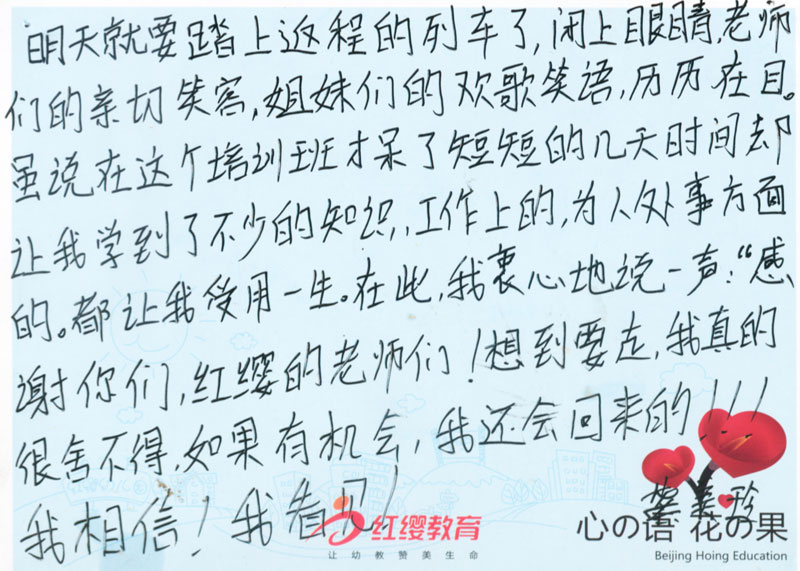 明天就要踏上返程的列车了,闭上眼睛,老师
们的亲切笑容,姐妹们的欢歌笑语,历历在目。
虽说在这个培训班才呆了短短的几天时间却
让我学到了不少的知识,工作上的,为人处事方面
的。都让我受用一生。在此,我衷心地说一声:“感
谢你们,红缨的老师们!想到要走,我真的
很舍不得,如果有机会,我还会回来的!!!
我相信!我看见!
美珍
红缨教育
让幼教赞美生命
心の语 花の果
Beijing Hoing Education